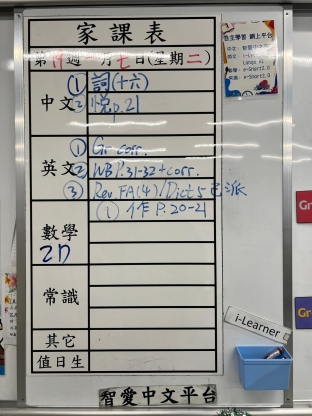 家課表
第19週 一月七日(星期二)
中文 ① 詞(十六)
② 悦p.21
英文 ① Gr corr.
② WB P.31-32+corr.
③ Rev FA(4)/Dict 5 已派
數學 (1) 作 P.20-21
2D
常識
其它
值日生
智愛中文平台
自主學習 網上平台
i-Learner
Gr
Gr